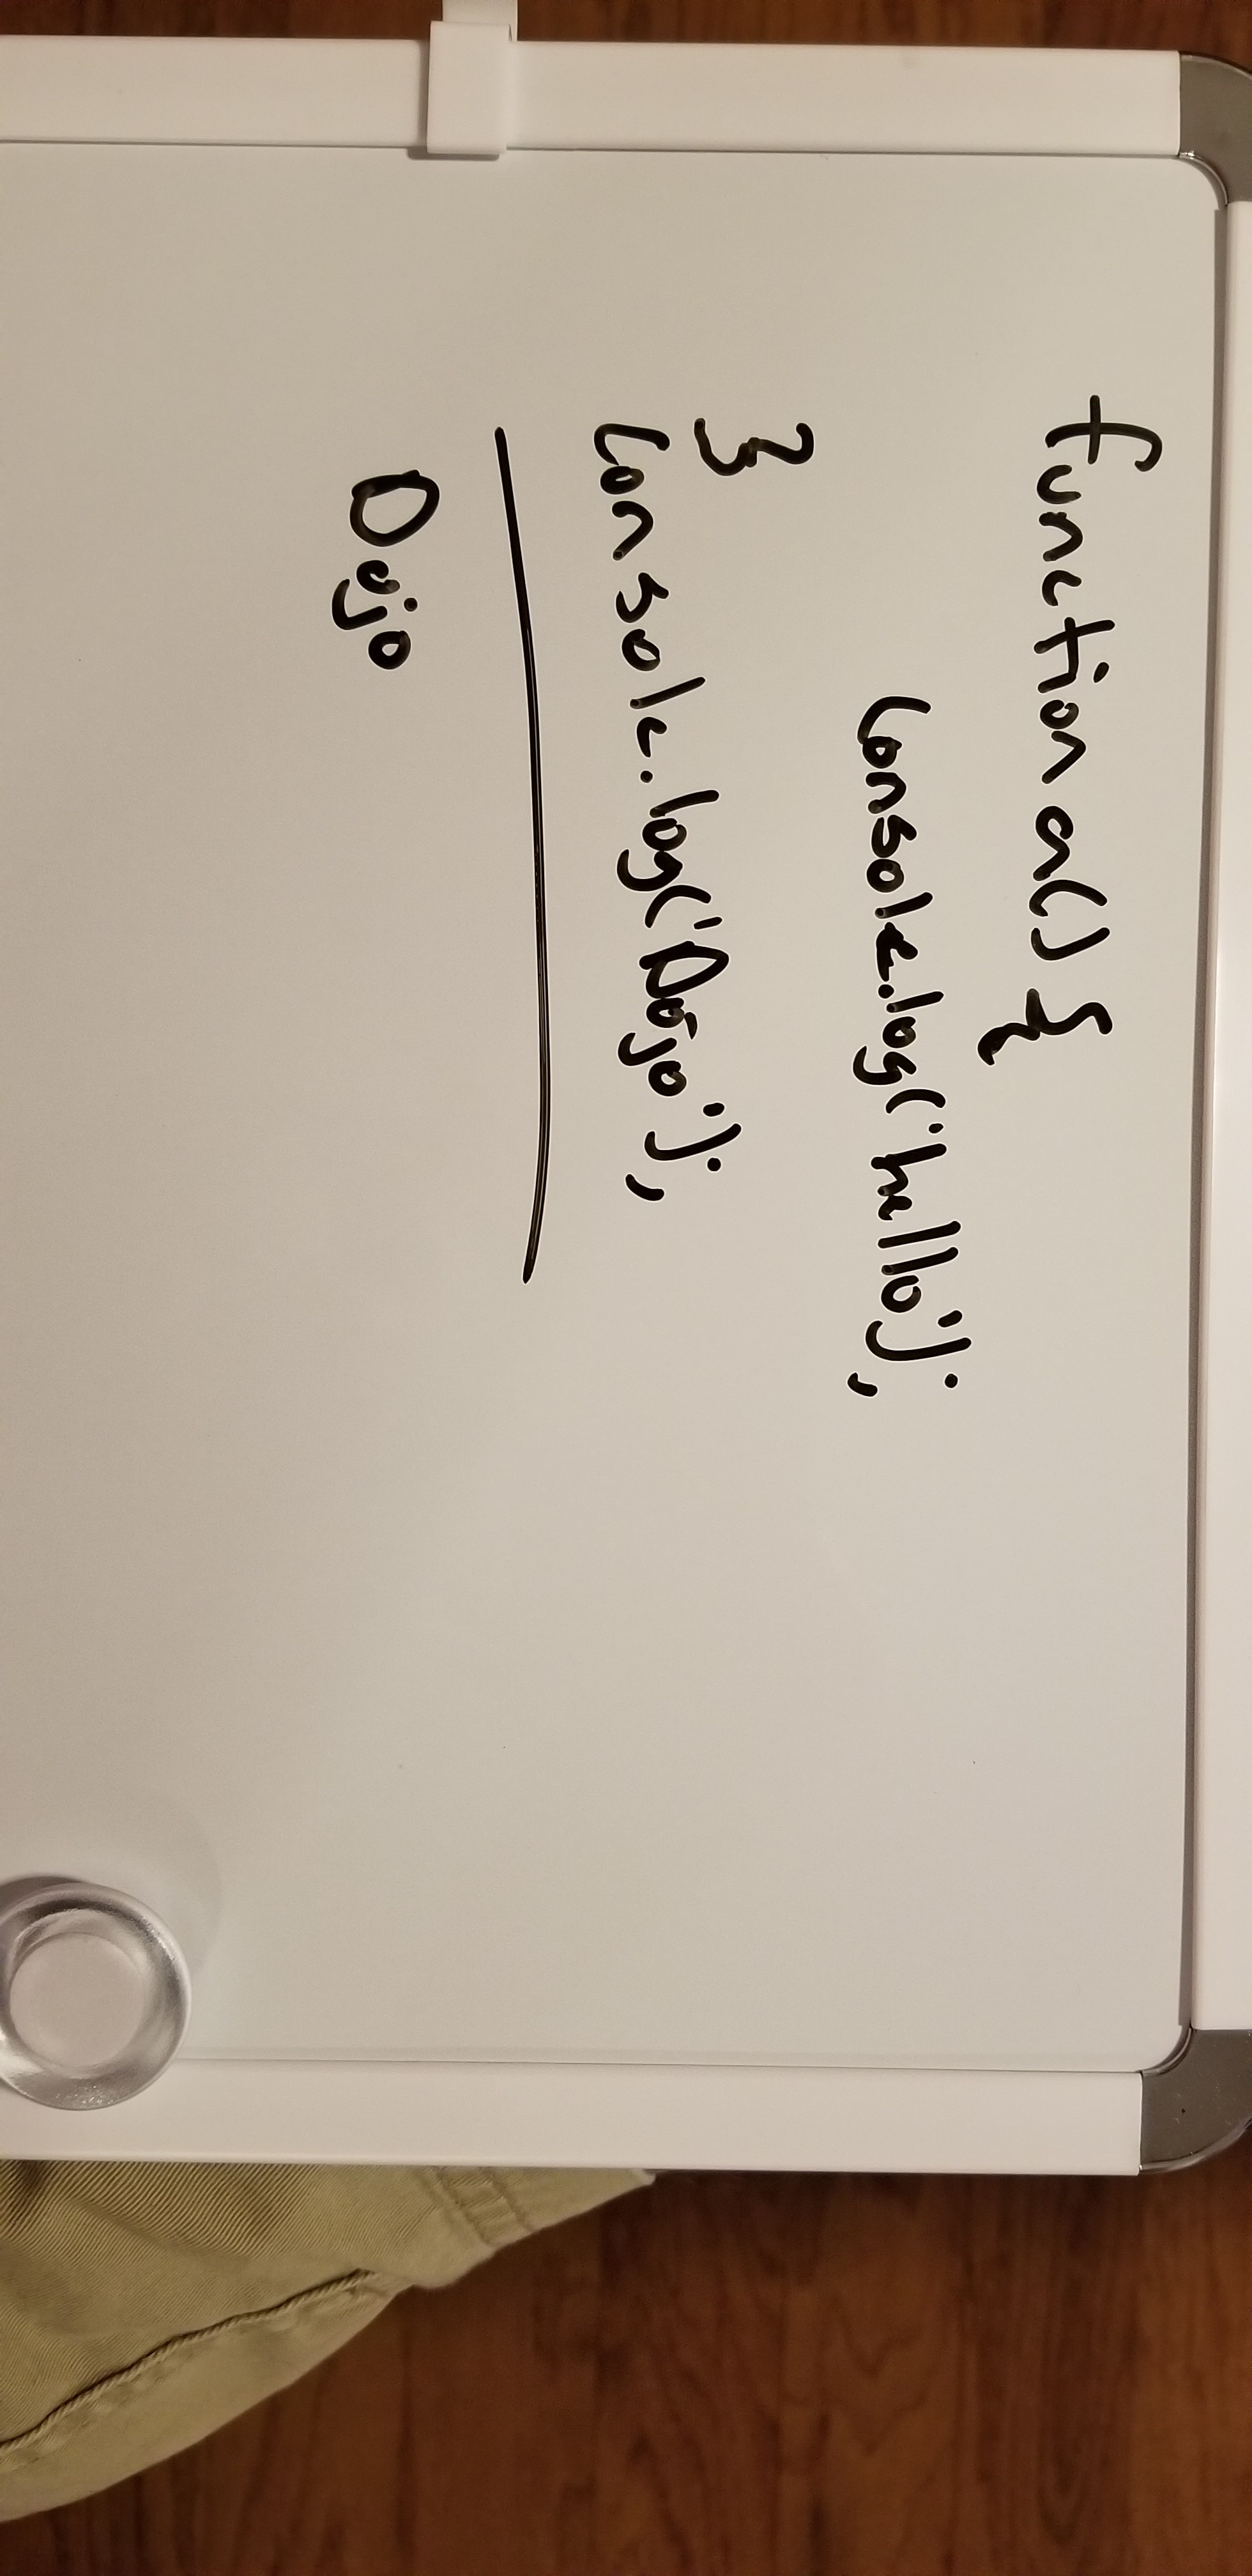 function a() {
console.log('hello');
}
console.log('Dojo');
Dojo